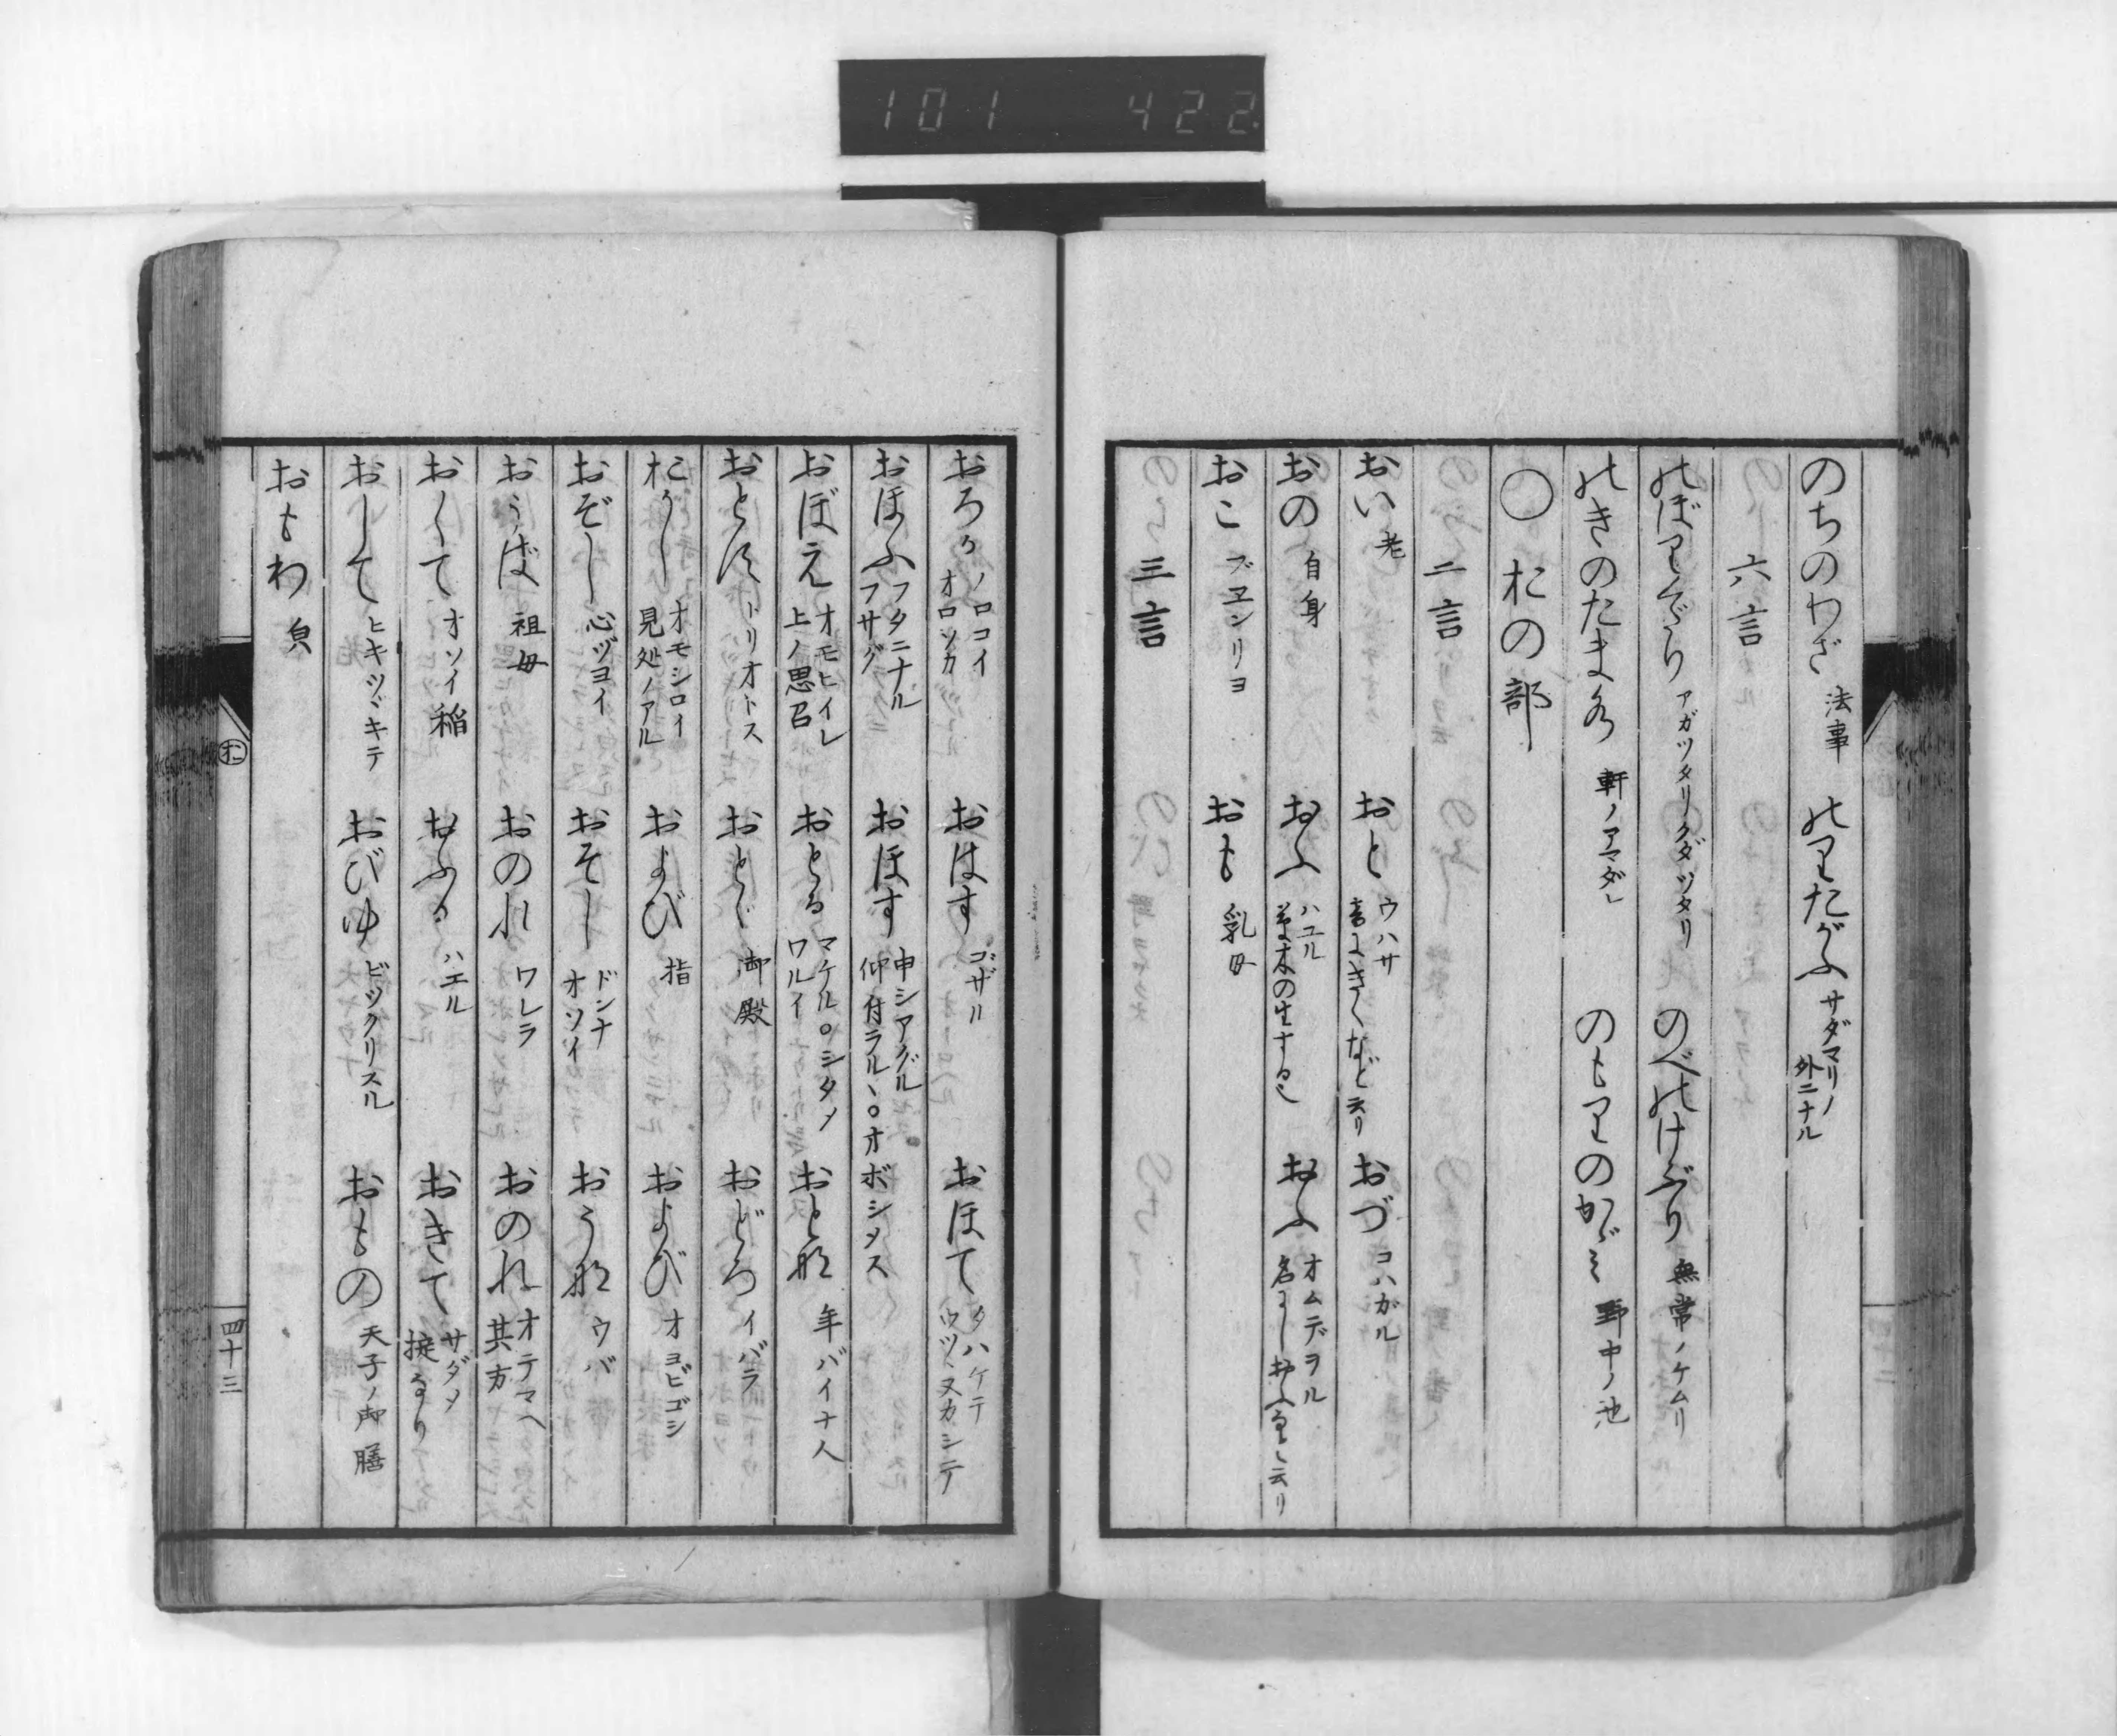 101 422
のちのわざ 法事 のりたがふ サダマリノ外ニナル
六言
のぼりくだり アガツタリクダツタリ のべのけぶり 無常ノケムリ
のきのたま水 軒ノアマダレ のもりのかゞみ 野中ノ池
〇 おの部
二言
おい 老 おと ウハサ 音にきくなど云リ おづ コハガル
おの 自身 おふ ハユル 草木の生する也 おふ オムデヲル 名にしおふ
おこ ブヱンリヨ おも 乳母
三言
おろか ノロコイ オロソカ おはす ゴザル おほて
おほふ フタニナル フサグ おほす 申シアグル 仰付ラルヽ。オボシメス
おぼえ オモヒイレ 上ノ思召 おとる マケル。シタメ ワルイ おとな 年バイナ人
おとす トリオトス おとゞ 御殿 おどろ イバラ
おかし オモシロイ 見処ノアル および 指 および オヨビゴシ
おぞし 心ヅヨイ おそし ドンナ オソイ おうな ウバ
おうば 祖母 おのれ ワレラ おのれ オテマヘ 其方
おくて オソイ稲 おふる ハエル おきて サダメ 掟なり
おして ヒキツヾキテ おびゆ ビツクリスル おもの 天子ノ御膳
おもわ 㒵
四十三